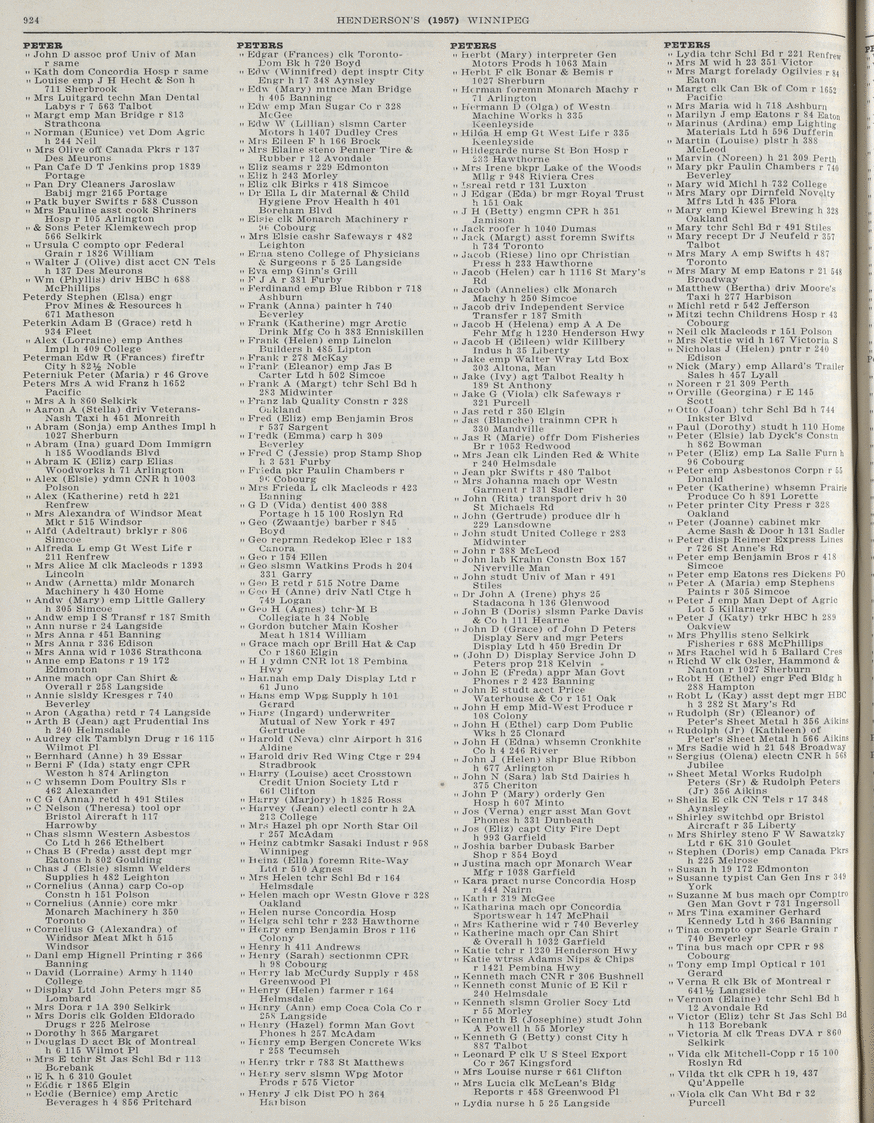 924
HENDERSON'S (1957) WINNIPEG
PETER
" John D assoc prof Univ of Man
r same
" Kath dom Concordia Hosp r same
" Louise emp J H Hecht & Son h
711 Sherbrook
" Mrs Luitgard techn Man Dental
Labys r 7 563 Talbot
" Margt emp Man Bridge r 813
Strathcona
" Norman (Eunice) vet Dom Agric
h 244 Neil
" Mrs Olive off Canada Pkrs r 137
Des Meurons
" Pan Cafe D T Jenkins prop 1839
Portage
" Pan Dry Cleaners Jaroslaw
Babij mgr 2165 Portage
" Patk buyer Swifts r 588 Cusson
" Mrs Pauline asst cook Shriners
Hosp r 105 Arlington
" & Sons Peter Klemkewech prop
566 Selkirk
" Ursula C compto opr Federal
Grain r 1826 William
" Walter J (Olive) dist acct CN Tels
h 137 Des Meurons
" Wm (Phyllis) driv HBC h 688
McPhillips
Peterdy Stephen (Elsa) engr
Prov Mines & Resources h
671 Matheson
Peterkin Adam B (Grace) retd h
934 Fleet
" Alex (Lorraine) emp Anthes
Impl h 409 College
Peterman Edw R (Frances) fireftr
City h 82½ Noble
Peterniuk Peter (Maria) r 46 Grove
Peters Mrs A wid Franz h 1652
Pacific
" Mrs A h 860 Selkirk
" Aaron A (Stella) driv Veterans-
Nash Taxi h 451 Monreith
" Abram (Sonja) emp Anthes Impl h
1027 Sherburn
" Abram (Ina) guard Dom Immigrn
h 185 Woodlands Blvd
" Abram K (Eliz) carp Elias
Woodworks h 71 Arlington
" Alex (Elsie) ydmn CNR h 1003
Polson
" Alex (Katherine) retd h 221
Renfrew
" Mrs Alexandra of Windsor Meat
Mkt r 515 Windsor
" Alfd (Adeltraut) brklyr r 806
Simcoe
" Alfreda L emp Gt West Life r
211 Renfrew
" Mrs Alice M clk Macleods r 1393
Lincoln
" Andw (Arnetta) mldr Monarch
Machinery h 430 Home
" Andw (Mary) emp Little Gallery
h 305 Simcoe
" Andw emp I S Transf r 187 Smith
" Ann nurse r 24 Langside
" Mrs Anna r 451 Banning
" Mrs Anna r 336 Edison
" Mrs Anna wid r 1036 Strathcona
" Anne emp Eatons r 19 172
Edmonton
" Anne mach opr Can Shirt &
Overall r 258 Langside
" Annie slsldy Kresges r 740
Beverley
" Aron (Agatha) retd r 74 Langside
" Arth B (Jean) agt Prudential Ins
h 240 Helmsdale
" Audrey clk Tamblyn Drug r 16 115
Wilmot Pl
" Bernhard (Anne) h 39 Essar
" Berni F (Ida) staty engr CPR
Weston h 874 Arlington
" C whsemn Dom Poultry Sls r
462 Alexander
" C G (Anna) retd h 491 Stiles
" C Nelson (Theresa) tool opr
Bristol Aircraft h 117
Harrowby
" Chas slsmn Western Asbestos
Co Ltd h 266 Ethelbert
" Chas B (Freda) asst dept mgr
Eatons h 802 Goulding
" Chas J (Elsie) slsmn Welders
Supplies h 482 Leighton
" Cornelius (Anna) carp Co-op
Constn h 151 Polson
" Cornelius (Annie) core mkr
Monarch Machinery h 350
Toronto
" Cornelius G (Alexandra) of
Windsor Meat Mkt h 515
Windsor
" Danl emp Hignell Printing r 366
Banning
" David (Lorraine) Army h 1140
College
" Display Ltd John Peters mgr 85
Lombard
" Mrs Dora r 1A 390 Selkirk
" Mrs Doris clk Golden Eldorado
Drugs r 225 Melrose
" Dorothy h 365 Margaret
" Douglas D acct Bk of Montreal
h 6 115 Wilmot Pl
" Mrs E tchr St Jas Schl Bd r 113
Borebank
" E K h 6 310 Goulet
" Eddie r 1865 Elgin
" Eddie (Bernice) emp Arctic
Beverages h 4 856 Pritchard
PETERS
" Edgar (Frances) clk Toronto-
Dom Bk h 720 Boyd
" Edw (Winnifred) dept insptr City
Engr h 17 348 Aynsley
" Edw (Mary) mtnce Man Bridge
h 405 Banning
" Edw emp Man Sugar Co r 328
McGee
" Edw W (Lillian) slsmn Carter
Motors h 1407 Dudley Cres
" Mrs Eileen F h 166 Brock
" Mrs Elaine steno Penner Tire &
Rubber r 12 Avondale
" Eliz seams r 229 Edmonton
" Eliz h 243 Morley
" Eliz clk Birks r 418 Simcoe
" Dr Ella L dir Maternal & Child
Hygiene Prov Health h 401
Boreham Blvd
" Elsie clk Monarch Machinery r
96 Cobourg
" Mrs Elsie cashr Safeways r 482
Leighton
" Erna steno College of Physicians
& Surgeons r 5 25 Langside
" Eva emp Ginn's Grill
" F J A r 381 Furby
" Ferdinand emp Blue Ribbon r 718
Ashburn
" Frank (Anna) painter h 740
Beverley
" Frank (Katherine) mgr Arctic
Drink Mfg Co h 383 Enniskillen
" Frank (Helen) emp Linclon
Builders h 485 Lipton
" Frank r 278 McKay
" Frank (Eleanor) emp Jas B
Carter Ltd h 502 Simcoe
" Frank A (Margt) tchr Schl Bd h
283 Midwinter
" Franz lab Quality Constn r 328
Oakland
" Fred (Eliz) emp Benjamin Bros
r 537 Sargent
" Fredk (Emma) carp h 309
Beverley
" Fred C (Jessie) prop Stamp Shop
h 3 531 Furby
" Frieda pkr Paulin Chambers r
96 Cobourg
" Mrs Frieda L clk Macleods r 423
Banning
" G D (Vida) dentist 400 388
Portage h 15 100 Roslyn Rd
" Geo (Zwaantje) barber r 845
Boyd
" Geo reprmn Redekop Elec r 183
Canora
" Geo r 154 Ellen
" Geo slsmn Watkins Prods h 204
331 Garry
" Geo B retd r 515 Notre Dame
" Geo H (Anne) driv Natl Ctge h
749 Logan
" Geo H (Agnes) tchr M B
Collegiate h 34 Noble
" Gordon butcher Main Kosher
Meat h 1814 William
" Grace mach opr Brill Hat & Cap
Co r 1860 Elgin
" H J ydmn CNR lot 18 Pembina
Hwy
" Hannah emp Daly Display Ltd r
61 Juno
" Hans emp Wpg Supply h 101
Gerard
" Hans (Ingard) underwriter
Mutual of New York r 497
Gertrude
" Harold (Neva) clnr Airport h 316
Aldine
" Harold driv Red Wing Ctge r 294
Stradbrook
" Harry (Louise) acct Crosstown
Credit Union Society Ltd r
661 Clifton
" Harry (Marjory) h 1825 Ross
" Harvey (Jean) electl contr h 2A
213 College
" Mrs Hazel ph opr North Star Oil
r 257 McAdam
" Heinz cabtmkr Sasaki Indust r 958
Winnipeg
" Heinz (Ella) foremn Rite-Way
Ltd r 510 Agnes
" Mrs Helen tchr Schl Bd r 164
Helmsdale
" Helen mach opr Westn Glove r 328
Oakland
" Helen nurse Concordia Hosp
" Helga schl tchr r 233 Hawthorne
" Henry emp Benjamin Bros r 116
Colony
" Henry h 411 Andrews
" Henry (Sarah) sectionmn CPR
h 98 Cobourg
" Henry lab McCurdy Supply r 458
Greenwood Pl
" Henry (Helen) farmer r 164
Helmsdale
" Henry (Ann) emp Coca Cola Co r
258 Langside
" Henry (Hazel) formn Man Govt
Phones h 257 McAdam
" Henry emp Bergen Concrete Wks
r 258 Tecumseh
" Henry trkr r 783 St Matthews
" Henry serv slsmn Wpg Motor
Prods r 575 Victor
" Henry J clk Dist PO h 364
Harbison
PETERS
" Herbt (Mary) interpreter Gen
Motors Prods h 1063 Main
" Herbt F clk Bonar & Bemis r
1027 Sherburn
" Herman foremn Monarch Machy r
71 Arlington
" Hermann D (Olga) of Westn
Machine Works h 335
Keenleyside
" Hilda H emp Gt West Life r 335
Keenleyside
" Hildegarde nurse St Bon Hosp r
233 Hawthorne
" Mrs Irene bkpr Lake of the Woods
Mllg r 948 Riviera Cres
" Isreal retd r 131 Luxton
" J Edgar (Eda) br mgr Royal Trust
h 151 Oak
" J H (Betty) engmn CPR h 351
Jamison
" Jack roofer h 1040 Dumas
" Jack (Margt) asst foremn Swifts
h 734 Toronto
" Jacob (Riese) lino opr Christian
Press h 233 Hawthorne
" Jacob (Helen) car h 1116 St Mary's
Rd
" Jacob (Annelies) clk Monarch
Machy h 250 Simcoe
" Jacob driv Independent Service
Transfer r 187 Smith
" Jacob H (Helena) emp A A De
Fehr Mfg h 1230 Henderson Hwy
" Jacob H (Eileen) wldr Killbery
Indus h 35 Liberty
" Jake emp Walter Wray Ltd Box
303 Altona, Man
" Jake (Ivy) agt Talbot Realty h
189 St Anthony
" Jake G (Viola) clk Safeways r
321 Purcell
" Jas retd r 350 Elgin
" Jas (Blanche) trainmn CPR h
330 Mandville
" Jas R (Marie) offr Dom Fisheries
Br r 1053 Redwood
" Mrs Jean clk Linden Red & White
r 240 Helmsdale
" Jean pkr Swifts r 480 Talbot
" Mrs Johanna mach opr Westn
Garment r 131 Sadler
" John (Rita) transport driv h 30
St Michaels Rd
" John (Gertrude) produce dlr h
229 Lansdowne
" John studt United College r 283
Midwinter
" John r 388 McLeod
" John lab Krahn Constn Box 157
Niverville Man
" John studt Univ of Man r 491
Stiles
" Dr John A (Irene) phys 25
Stadacona h 136 Glenwood
" John B (Doris) slsmn Parke Davis
& Co h 111 Hearne
" John D (Grace) of John D Peters
Display Serv and mgr Peters
Display Ltd h 450 Bredin Dr
" (John D) Display Service John D
Peters prop 218 Kelvin
" John E (Freda) appr Man Govt
Phones r 2 423 Banning
" John E studt acct Price
Waterhouse & Co r 151 Oak
" John H emp Mid-West Produce r
108 Colony
" John H (Ethel) carp Dom Public
Wks h 25 Clonard
" John H (Edna) whsemn Cronkhite
Co h 4 246 River
" John J (Helen) shpr Blue Ribbon
h 677 Arlington
" John N (Sara) lab Std Dairies h
375 Cheriton
" John P (Mary) orderly Gen
Hosp h 607 Minto
" Jos (Verna) engr asst Man Govt
Phones h 331 Dunbeath
" Jos (Eliz) capt City Fire Dept
h 993 Garfield
" Joshia barber Dubask Barber
Shop r 854 Boyd
" Justina mach opr Monarch Wear
Mfg r 1038 Garfield
" Kara pract nurse Concordia Hosp
r 444 Nairn
" Kath r 319 McGee
" Katharina mach opr Concordia
Sportswear h 147 McPhail
" Mrs Katherine wid r 740 Beverley
" Katherine mach opr Can Shirt
& Overall h 1032 Garfield
" Katie tchr r 1230 Henderson Hwy
" Katie wtrss Adams Nips & Chips
r 1421 Pembina Hwy
" Kenneth mach CNR r 306 Bushnell
" Kenneth const Munic of E Kil r
240 Helmsdale
" Kenneth slsmn Grolier Socy Ltd
r 55 Morley
" Kenneth B (Josephine) studt John
A Powell h 55 Morley
" Kenneth G (Betty) const City h
887 Talbot
" Leonard P clk U S Steel Export
Co r 267 Kingsford
" Mrs Louise nurse r 661 Clifton
" Mrs Lucia clk McLean's Bldg
Reports r 458 Greenwood Pl
" Lydia nurse h 5 25 Langside
PETERS
" Lydia tchr Schl Bd r 221 Renfrew
" Mrs M wid h 23 351 Victor
" Mrs Margt forelady Ogilvies r 84
Eaton
" Margt clk Can Bk of Com r 1652
Pacific
" Mrs Maria wid h 718 Ashburn
" Marilyn J emp Eatons r 84 Eaton
" Marinus (Ardina) emp Lighting
Materials Ltd h 596 Dufferin
" Martin (Louise) plstr h 388
McLeod
" Marvin (Noreen) h 21 309 Perth
" Mary pkr Paulin Chambers r 746
Beverley
" Mary wid Michl h 732 College
" Mrs Mary opr Dirnfeld Novelty
Mfrs Ltd h 435 Flora
" Mary emp Kiewel Brewing h 328
Oakland
" Mary tchr Schl Bd r 491 Stiles
" Mary recept Dr J Neufeld r 357
Talbot
" Mrs Mary A emp Swifts h 487
Toronto
" Mrs Mary M emp Eatons r 21 548
Broadway
" Matthew (Bertha) driv Moore's
Taxi h 277 Harbison
" Michl retd r 542 Jefferson
" Mitzi techn Childrens Hosp r 43
Cobourg
" Neil clk Macleods r 151 Polson
" Mrs Nettie wid h 167 Victoria S
" Nicholas J (Helen) pntr r 240
Edison
" Nick (Mary) emp Allard's Trailer
Sales h 457 Lyall
" Noreen r 21 309 Perth
" Orville (Georgina) r E 145
Scott
" Otto (Joan) tchr Schl Bd h 744
Inkster Blvd
" Paul (Dorothy) studt h 110 Home
" Peter (Elsie) lab Dyck's Constn
h 862 Bowman
" Peter (Eliz) emp La Salle Furn h
96 Cobourg
" Peter emp Asbestonos Corpn r 55
Donald
" Peter (Katherine) whsemn Prairie
Produce Co h 891 Lorette
" Peter printer City Press r 328
Oakland
" Peter (Joanne) cabinet mkr
Acme Sash & Door h 131 Sadler
" Peter disp Reimer Express Lines
r 726 St Anne's Rd
" Peter emp Benjamin Bros r 418
Simcoe
" Peter emp Eatons res Dickens PO
" Peter A (Maria) emp Stephens
Paints r 305 Simcoe
" Peter J emp Man Dept of Agric
Lot 5 Killarney
" Peter J (Katy) trkr HBC h 289
Oakview
" Mrs Phyllis steno Selkirk
Fisheries r 688 McPhillips
" Mrs Rachel wid h 5 Ballard Cres
" Richd W clk Osler, Hammond &
Nanton r 1027 Sherburn
" Robt H (Ethel) engr Fed Bldg h
288 Hampton
" Robt L (Kay) asst dept mgr HBC
h 3 282 St Mary's Rd
" Rudolph (Sr) (Eleanor) of
Peter's Sheet Metal h 356 Aikins
" Rudolph (Jr) (Kathleen) of
Peter's Sheet Metal h 566 Aikins
" Mrs Sadie wid h 21 548 Broadway
" Sergius (Olena) electn CNR h 568
Jubilee
" Sheet Metal Works Rudolph
Peters (Sr) & Rudolph Peters
(Jr) 356 Aikins
" Sheila E clk CN Tels r 17 348
Aynsley
" Shirley switchbd opr Bristol
Aircraft r 35 Liberty
" Mrs Shirley steno P W Sawatzky
Ltd r 6K 310 Goulet
" Stephen (Doris) emp Canada Pkrs
h 225 Melrose
" Susan h 19 172 Edmonton
" Susanne typist Can Gen Ins r 349
York
" Suzanne M bus mach opr Comptro
Gen Man Govt r 731 Ingersoll
" Mrs Tina examiner Gerhard
Kennedy Ltd h 366 Banning
" Tina compto opr Searle Grain r
740 Beverley
" Tina bus mach opr CPR r 98
Cobourg
" Tony emp Impl Optical r 101
Gerard
" Verna R clk Bk of Montreal r
641½ Langside
" Vernon (Elaine) tchr Schl Bd h
12 Avondale Rd
" Victor (Eliz) tchr St Jas Schl Bd
h 113 Borebank
" Victoria M clk Treas DVA r 860
Selkirk
" Vida clk Mitchell-Copp r 15 100
Roslyn Rd
" Vilda tkt clk CPR h 19, 437
Qu'Appelle
" Viola clk Can Wht Bd r 32
Purcell